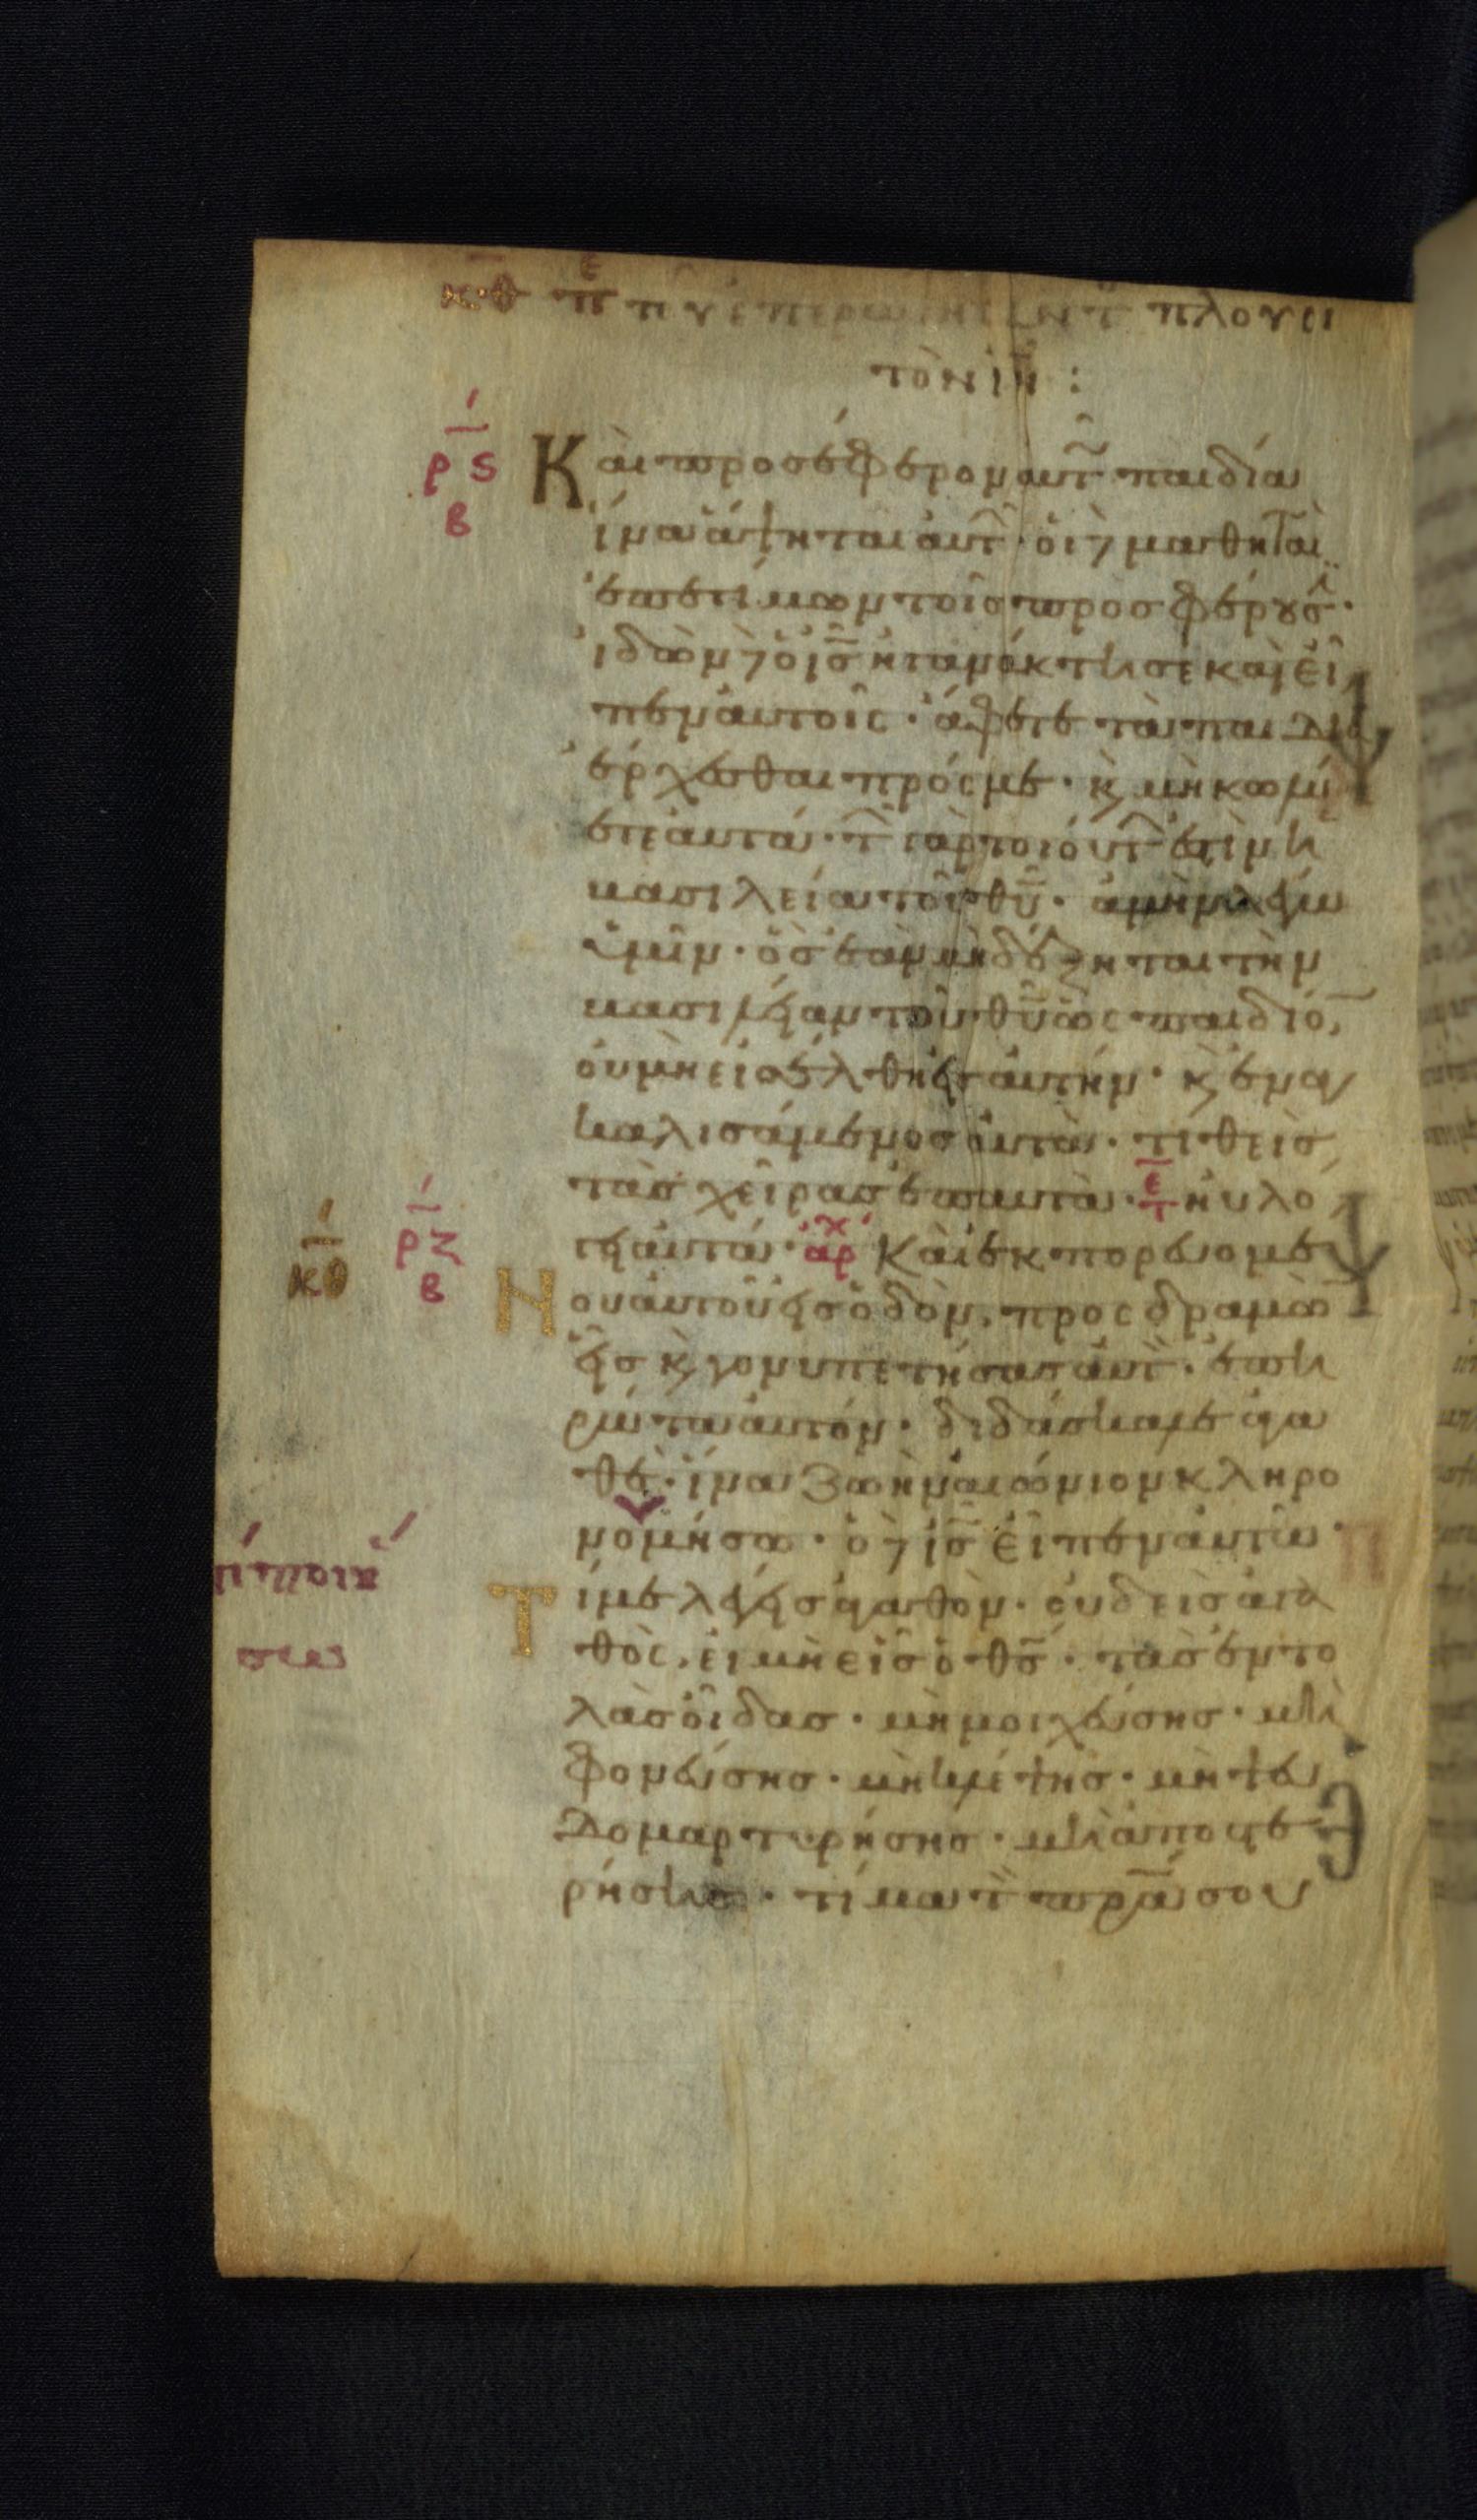 κθ π τ γ ἐπερωτησαντ πλουσι
τὸν ιν :
ρς
β
Καὶ προσέφερον αυτ παιδία
ἵνα ἅψηται αὐτ · οἱ δὲ μαθηταὶ
ἐπετίμων τοῖς προσφέρουσ ·
ἰδὼν δὲ ὁ ις ἠγανάκτησε καὶ εἶ
πεν αὐτοῖς · ἄφετε τὰ παιδία
ἔρχεσθαι πρός με · κ μὴ κωλύ
ετε αυτά · τ γὰρ τοιούτ ἐστὶν η
βασιλεία τοῦ θυ · ἀμὴν λέγω
ὑμῖν · ὃς ἐὰν μὴ δέξηται τὴν
βασιλείαν τοῦ θυ ὡς παιδίο
οὐ μὴ εἰσέλθη εἰς αυτήν · κ ἐναγ
καλισάμενος αὐτὰ · τιθεὶς
τὰς χεῖρας ἐπ αυτὰ · τε ηυλό
γει αυτά · αρχ Καὶ ἐκπορευομέ
κθ
ρζ
β
Νου αυτοῦ εις ὁδὸν, προσδραμὼ
εἷς κ γονυπετήσας αὐτ · ἐπη
ρώτα αυτόν · διδάσκαλε ἀγα
θὲ · ἵνα ζωὴν αἰώνιον κληρο
νομήσω · ὁ δὲ ις εἶπεν αυτῶ ·
τί ποιή
σω
Τί με λέγεις ἀγαθόν · οὐδεὶς ἀγα
θὸς, εἰ μὴ εἷς ὁ θς · τὰς ἐντο
λὰς οἶδας · μὴ μοιχεύσης · μὴ
φονεύσης · μὴ κλέψης · μὴ ψευ
δομαρτυρήσης · μὴ ἀποστε
ρήσης · τίμα τ πρα σου